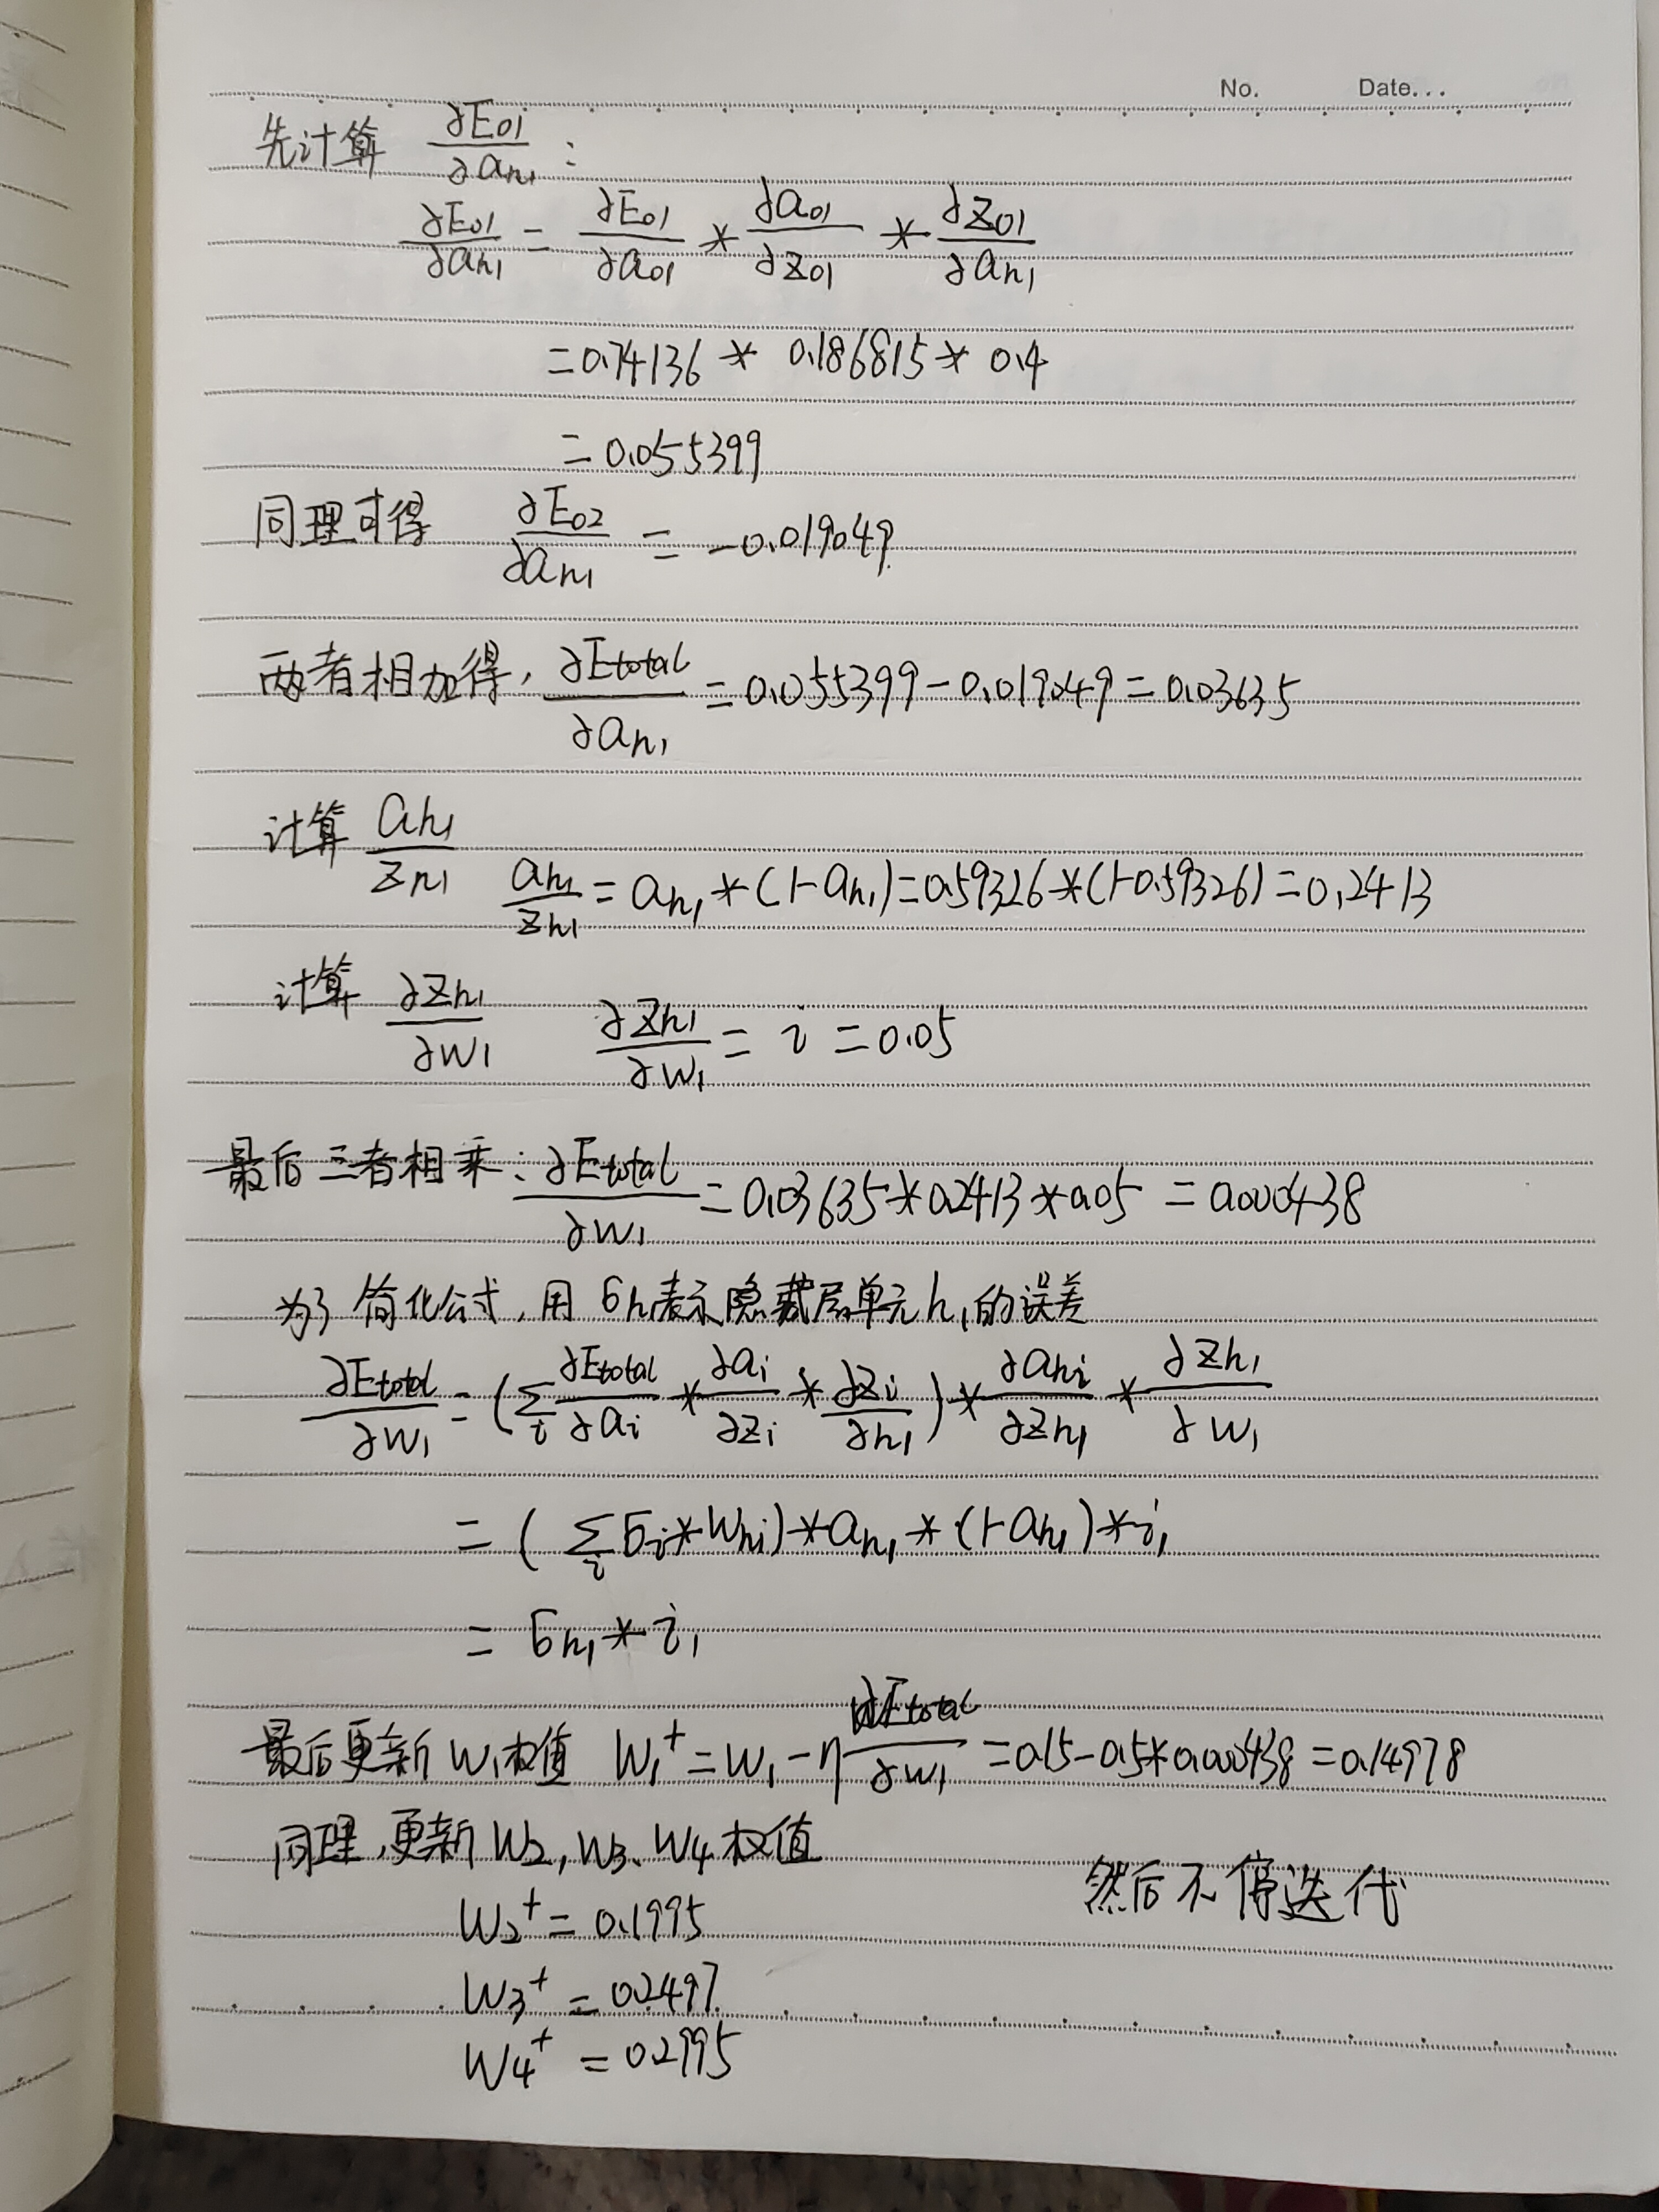 No. Date...
先计算 ∂Eo1/∂ah1 :
∂Eo1/∂ah1 = ∂Eo1/∂ao1 * ∂ao1/∂zo1 * ∂zo1/∂ah1
=0.74136 * 0.186815 * 0.4
= 0.055399
同理可得 ∂Eo2/∂ah1 = -0.019049
两者相加得, ∂Etotal/∂ah1 = 0.055399-0.019049=0.03635
计算 ah1/zh1 ah1/zh1 = ah1*(1-ah1)=0.59326*(1-0.59326)=0.2413
计算 ∂zh1/∂w1 ∂zh1/∂w1 = i =0.05
最后三者相乘: ∂Etotal/∂w1 = 0.03635*0.2413*0.05 = 0.000438
为了简化公式,用 δh1表示隐藏层单元h1的误差
∂Etotal/∂w1 = (∑i ∂Etotal/∂ai * ∂ai/∂zi * ∂zi/∂h1) * ∂ahi/∂zh1 * ∂zh1/∂w1
= (∑i δi*whi)*ah1*(1-ah1)*i1
= δh1*i1
最后更新 w1权值 w1+=w1-η ∂Etotal/∂w1 =0.15-0.5*0.000438=0.14978
同理,更新 w2,w3、w4 权值
然后不停迭代
w2+ = 0.1995
w3+ = 0.2497
w4+ = 0.2995